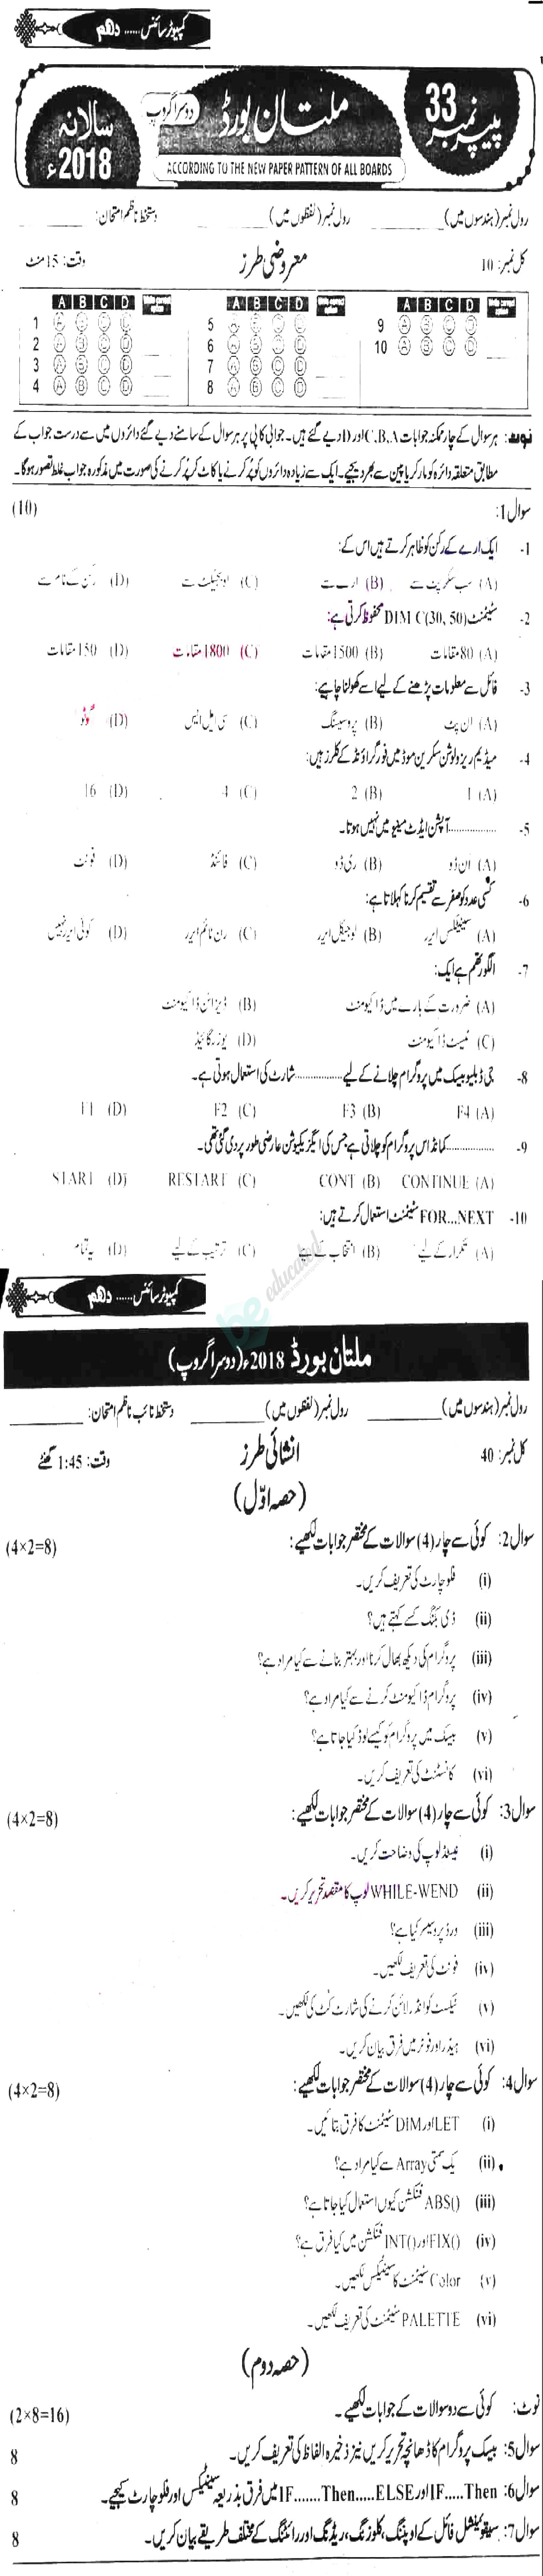 کمپیوٹر سائنس ...... دہم
پیپر نمبر 33
ملتان بورڈ
دوسرا گروپ
سالانہ 2018ء
ACCORDING TO THE NEW PAPER PATTERN OF ALL BOARDS
رول نمبر (ہندسوں میں) ________ رول نمبر (لفظوں میں) ________ دستخط ناظم امتحان: ________
کل نمبر: 10 معروضی طرز وقت: 15 منٹ
A B C D A B C D A B C D
1 A B C D 5 A B C D 9 A B C D
2 A B C D 6 A B C D 10 A B C D
3 A B C D 7 A B C D
4 A B C D 8 A B C D
نوٹ: ہر سوال کے چار ممکنہ جوابات C,B,A اور D دیے گئے ہیں۔ جوابی کاپی پر ہر سوال کے سامنے دیے گئے دائروں میں سے درست جواب کے
مطابق متعلقہ دائرہ کو مارکر یا پین سے بھر دیجیے۔ ایک سے زیادہ دائروں کو پُر کرنے یا کاٹ کر پُر کرنے کی صورت میں مذکورہ جواب غلط تصور ہوگا۔
سوال 1: (10)
1- ایک ارے کے رکن کو ظاہر کرتے ہیں اس کے:
(A) سب سکرپٹ سے (B) ارے سے (C) اوبجیکٹ سے (D) رکن کے نام سے
2- سٹیٹمنٹ DIM C(30, 50) محفوظ کرتی ہے:
(A) 80 مقامات (B) 1500 مقامات (C) 1800 مقامات (D) 150 مقامات
3- فائل سے معلومات پڑھنے کے لیے اسے کھولنا چاہیے:
(A) ان پٹ (B) پروسیسنگ (C) سی ایل ایس (D)
4- میڈیم ریزولوشن سکرین موڈ میں فور گراؤنڈ کے کلرز ہیں:
(A) 1 (B) 2 (C) 4 (D) 16
5- ................ آپشن ایڈٹ مینیو میں نہیں ہوتا۔
(A) اَن ڈو (B) ری ڈو (C) فائنڈ (D) فونٹ
6- کسی عدد کو صفر سے تقسیم کرنا کہلاتا ہے:
(A) سینٹیکس ایرر (B) لوجیکل ایرر (C) رن ٹائم ایرر (D) کوئی ایرر نہیں
7- الگورتھم ہے ایک:
(A) ضرورت کے بارے میں ڈاکیومنٹ (B) ڈیزائن ڈاکیومنٹ
(C) ٹیسٹ ڈاکیومنٹ (D) یوزر گائیڈ
8- جی ڈبلیو بیسک میں پروگرام چلانے کے لیے ................ شارٹ کی استعمال ہوتی ہے۔
(A) F4 (B) F3 (C) F2 (D) F1
9- ................ کمانڈ اس پروگرام کو چلاتی ہے جس کی ایگزیکیوشن عارضی طور پر دی گئی تھی۔
(A) CONTINUE (B) CONT (C) RESTART (D) START
10- FOR...NEXT سٹیٹمنٹ استعمال کرتے ہیں:
(A) تکرار کے لیے (B) انتخاب کے لیے (C) ترتیب کے لیے (D) یہ تمام
be educated
کمپیوٹر سائنس ...... دہم
ملتان بورڈ 2018ء (دوسرا گروپ)
رول نمبر (ہندسوں میں) ________ رول نمبر (لفظوں میں) ________ دستخط نائب ناظم امتحان: ________
کل نمبر: 40 انشائی طرز وقت: 1:45 گھنٹے
(حصہ اوّل)
سوال 2: کوئی سے چار (4) سوالات کے مختصر جوابات لکھیے: (4×2=8)
(i) فلو چارٹ کی تعریف کریں۔
(ii) ڈی بگنگ کسے کہتے ہیں؟
(iii) پروگرام کی دیکھ بھال کرنا اور بہتر بنانے سے کیا مراد ہے؟
(iv) پروگرام ڈاکیومنٹ کرنے سے کیا مراد ہے؟
(v) بیسک میں پروگرام کو کیسے لوڈ کیا جاتا ہے؟
(vi) کانسٹنٹ کی تعریف کریں۔
سوال 3: کوئی سے چار (4) سوالات کے مختصر جوابات لکھیے: (4×2=8)
(i) نیسٹڈ لوپ کی وضاحت کریں۔
(ii) WHILE-WEND لوپ کا مقصد تحریر کریں۔
(iii) ورڈ پروسیسر کیا ہے؟
(iv) فونٹ کی تعریف لکھیں۔
(v) ٹیکسٹ کو انڈر لائن کرنے کی شارٹ کٹ کی لکھیں۔
(vi) ہیڈر اور فوٹر میں فرق بیان کریں۔
سوال 4: کوئی سے چار (4) سوالات کے مختصر جوابات لکھیے: (4×2=8)
(i) LET اور DIM سٹیٹمنٹ کا فرق بتائیں۔
(ii) یک سمتی Array سے کیا مراد ہے؟
(iii) ABS() فنکشن کیوں استعمال کیا جاتا ہے؟
(iv) FIX() اور INT() فنکشن میں کیا فرق ہے؟
(v) Color سٹیٹمنٹ کا سینٹیکس لکھیں۔
(vi) PALETTE سٹیٹمنٹ کی تعریف لکھیں۔
(حصہ دوم)
نوٹ: کوئی سے دو سوالات کے جوابات لکھیے۔ (2×8=16)
سوال 5: بیسک پروگرام کا ڈھانچہ تحریر کریں نیز ذخیرہ الفاظ کی تعریف کریں۔ 8
سوال 6: IF.....Then اور IF.......Then.....ELSE میں فرق بذریعہ سینٹیکس اور فلو چارٹ کیجیے۔ 8
سوال 7: سیکوئینشل فائل کے اوپننگ، کلوزنگ، ریڈنگ اور رائٹنگ کے مختلف طریقے بیان کریں۔ 8